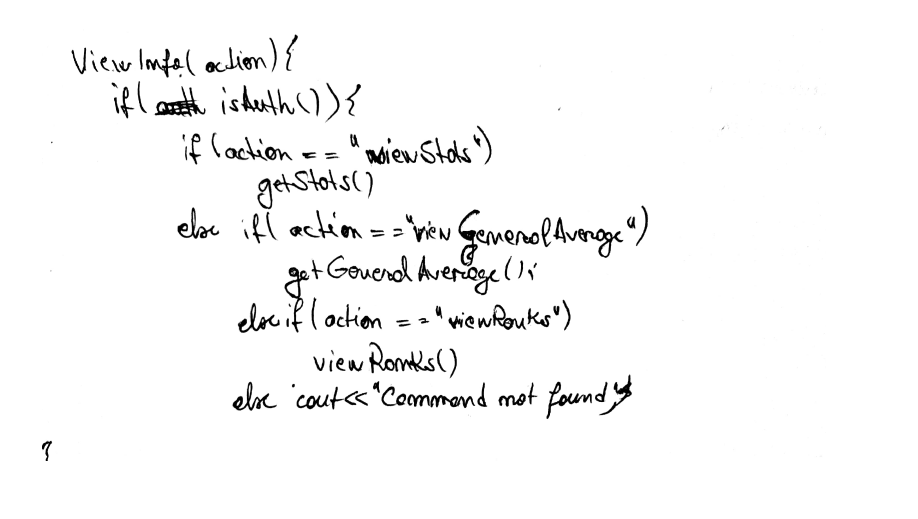 ViewInfo(action){
if(isAuth()){
if(action == "viewStats")
getStats()
else if(action == "view GeneralAverage")
getGeneralAverage();
else if(action == "viewRanks")
viewRanks()
else cout<<"Command not found"
}